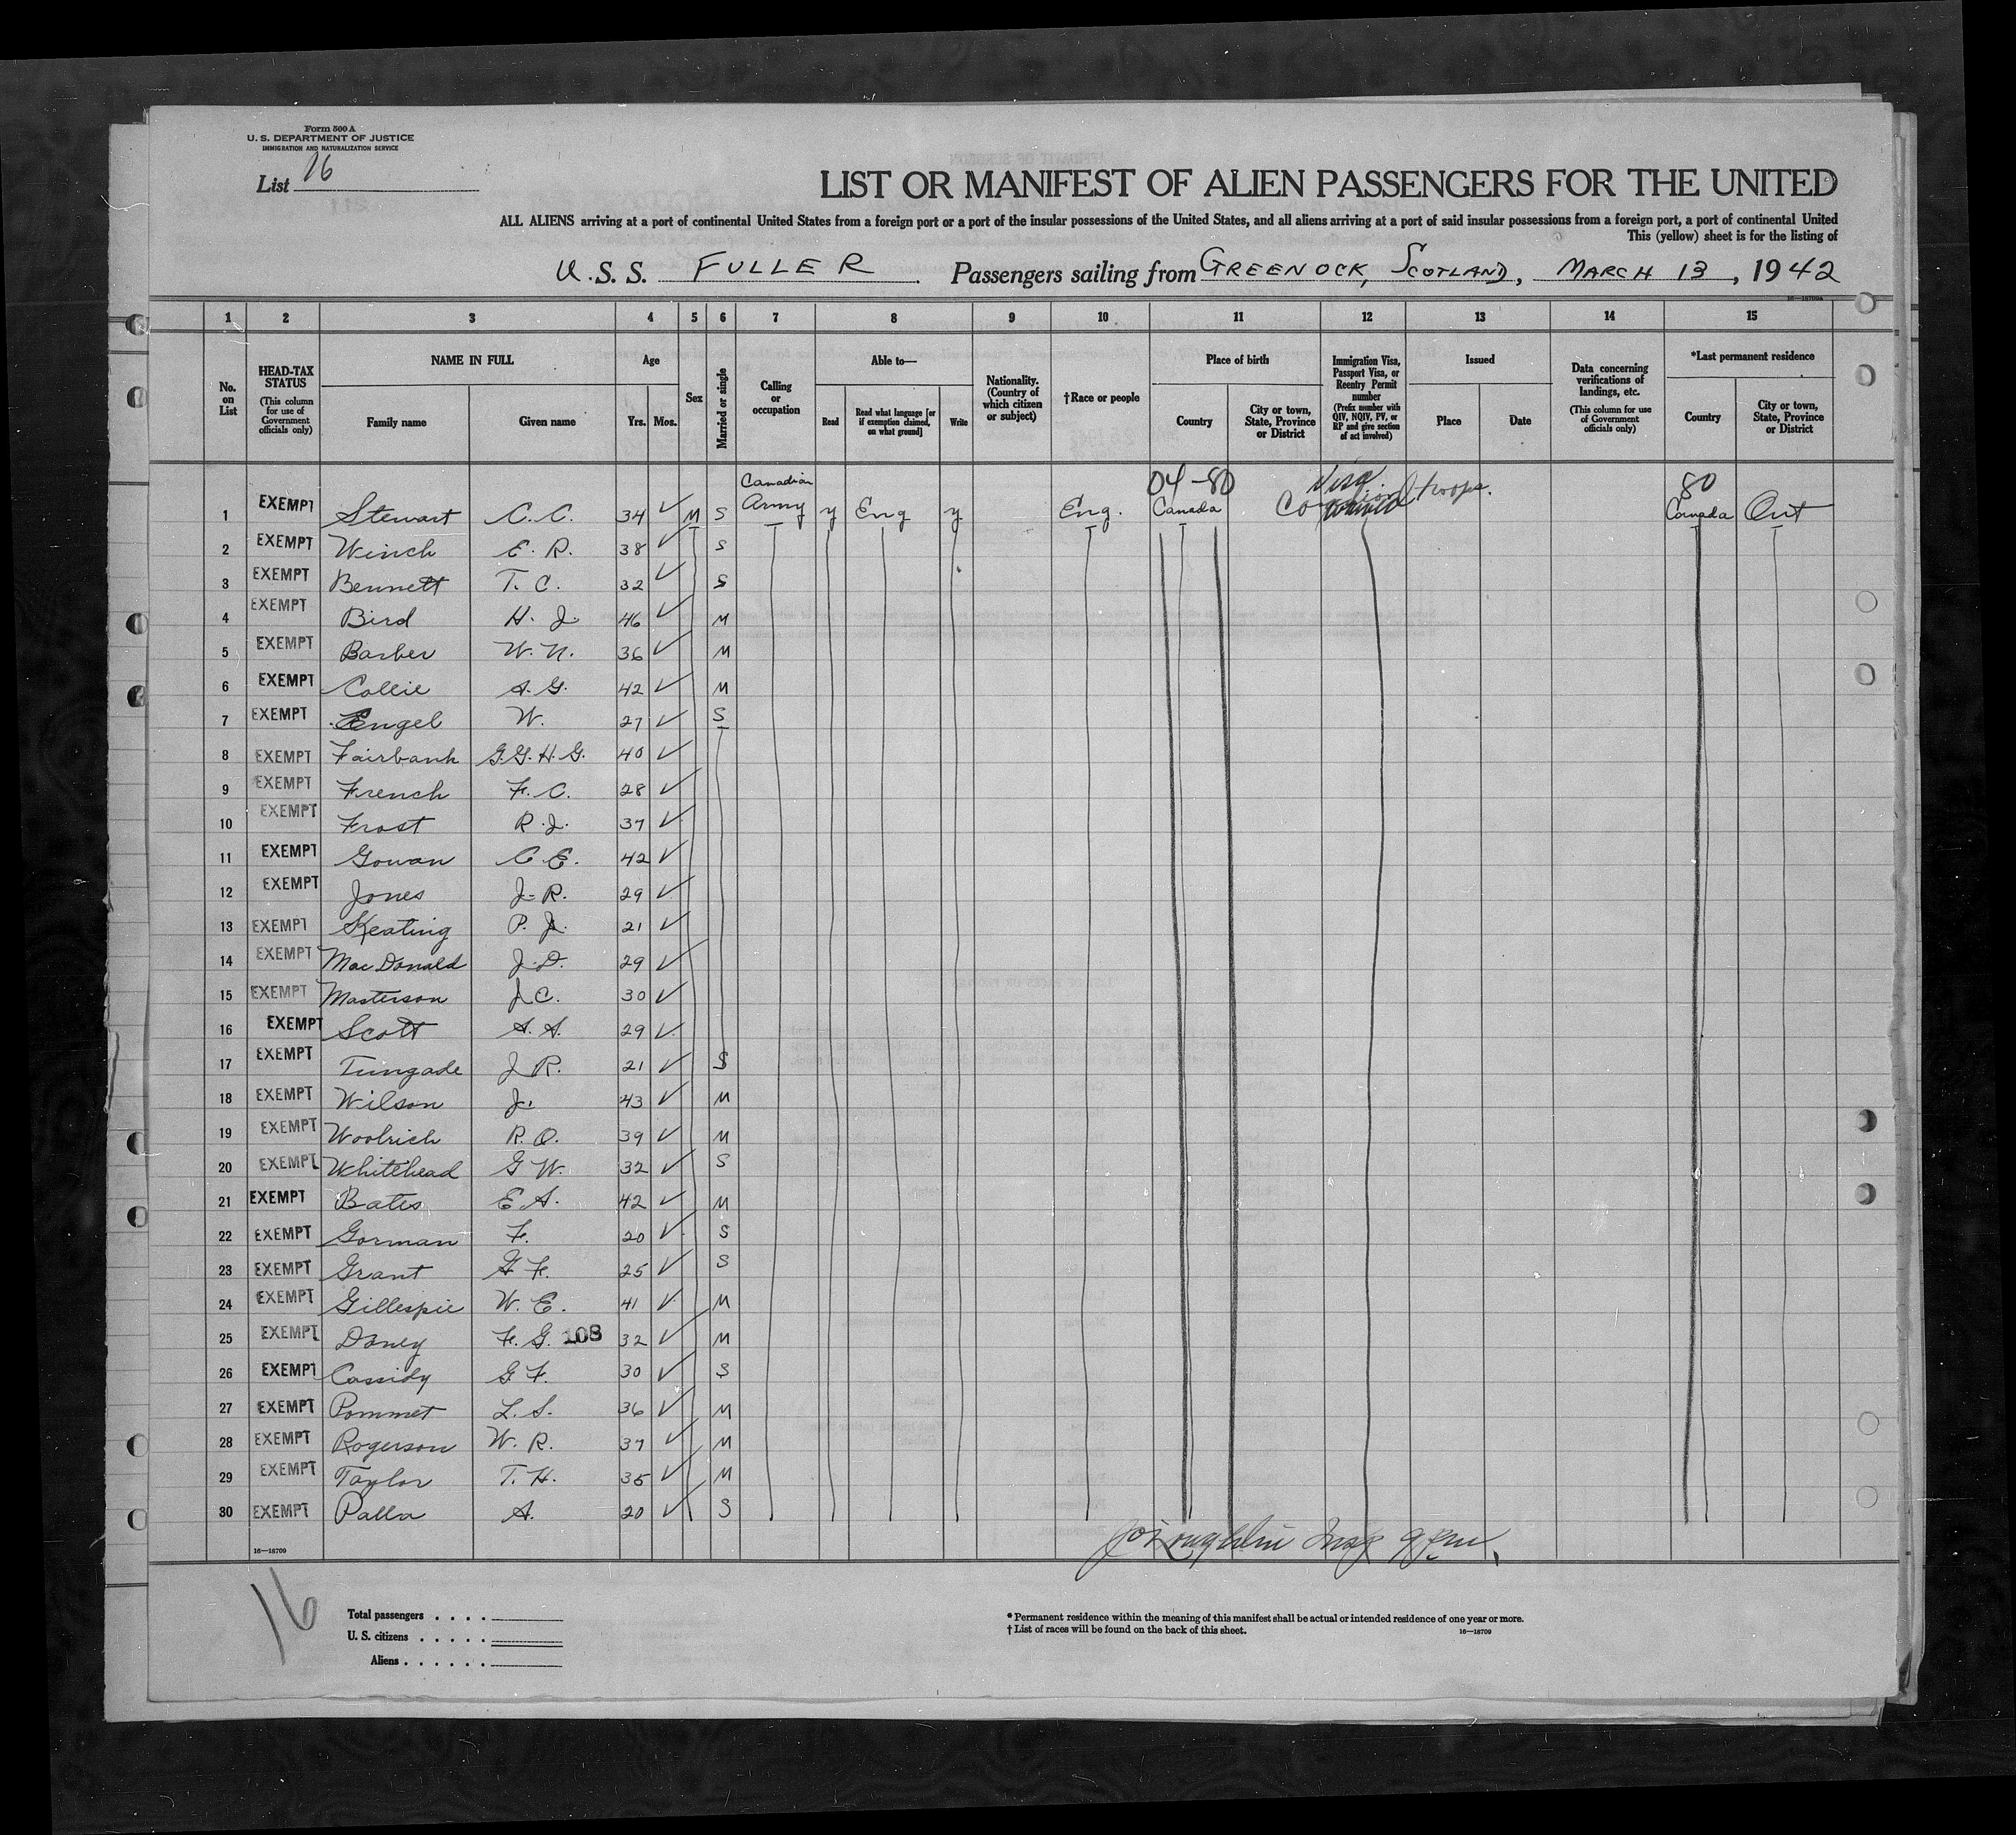 Form 500 A
U. S. DEPARTMENT OF JUSTICE
IMMIGRATION AND NATURALIZATION SERVICE
List 16
LIST OR MANIFEST OF ALIEN PASSENGERS FOR THE UNITED
ALL ALIENS arriving at a port of continental United States from a foreign port or a port of the insular possessions of the United States, and all aliens arriving at a port of said insular possessions from a foreign port, a port of continental United
This (yellow) sheet is for the listing of
U.S.S. FULLER Passengers sailing from GREENOCK, SCOTLAND, MARCH 13, 1942
16—18709A
1 2 3 4 5 6 7 8 9 10 11 12 13 14 15
No. on List
HEAD-TAX STATUS (This column for use of Government officials only)
NAME IN FULL
Family name
Given name
Age
Yrs. Mos.
Sex
Married or single
Calling or occupation
Able to—
Read
Read what language [or if exemption claimed, on what ground]
Write
Nationality. (Country of which citizen or subject)
†Race or people
Place of birth
Country
City or town, State, Province or District
Immigration Visa, Passport Visa, or Reentry Permit number (Prefix number with QIV, NQIV, PV, or RP and give section of act involved)
Issued
Place
Date
Data concerning verifications of landings, etc. (This column for use of Government officials only)
*Last permanent residence
Country
City or town, State, Province or District
04-80 Visa 80
1 EXEMPT Stewart C. C. 34 M S Canadian Army y Eng y Eng. Canada troops. Canada Ont
2 EXEMPT Winch E. R. 38 S
3 EXEMPT Bennett T. C. 32 S
4 EXEMPT Bird H. J. 46 M
5 EXEMPT Barber W. N. 36 M
6 EXEMPT Collie A. G. 42 M
7 EXEMPT Engel W. 27 S
8 EXEMPT Fairbank G. G. H. G. 40
9 EXEMPT French F. C. 28
10 EXEMPT Frost R. J. 37
11 EXEMPT Gowan C. E. 42
12 EXEMPT Jones J. R. 29
13 EXEMPT Keating P. J. 21
14 EXEMPT MacDonald J. D. 29
15 EXEMPT Masterson J C. 30
16 EXEMPT Scott A. A. 29
17 EXEMPT Tungade J R. 21 S
18 EXEMPT Wilson J. 43 M
19 EXEMPT Woolrich R. O. 39 M
20 EXEMPT Whitehead G W. 32 S
21 EXEMPT Bates E A. 42 M
22 EXEMPT Gorman F. 20 S
23 EXEMPT Grant G F. 25 S
24 EXEMPT Gillespie W. E. 41 M
25 EXEMPT Doney F. G. 108 32 M
26 EXEMPT Cassidy G F. 30 S
27 EXEMPT Pommet L. S. 36 M
28 EXEMPT Rogerson W. R. 37 M
29 EXEMPT Taylor T. H. 35 M
30 EXEMPT Palla A. 20 S
16—18709
16
Total passengers . . . .
U. S. citizens . . . . .
Aliens . . . . . .
* Permanent residence within the meaning of this manifest shall be actual or intended residence of one year or more.
† List of races will be found on the back of this sheet.
16—18709